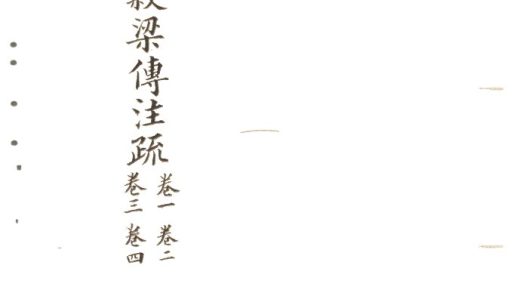 梁傳注疏
卷一 卷二
卷三 卷四